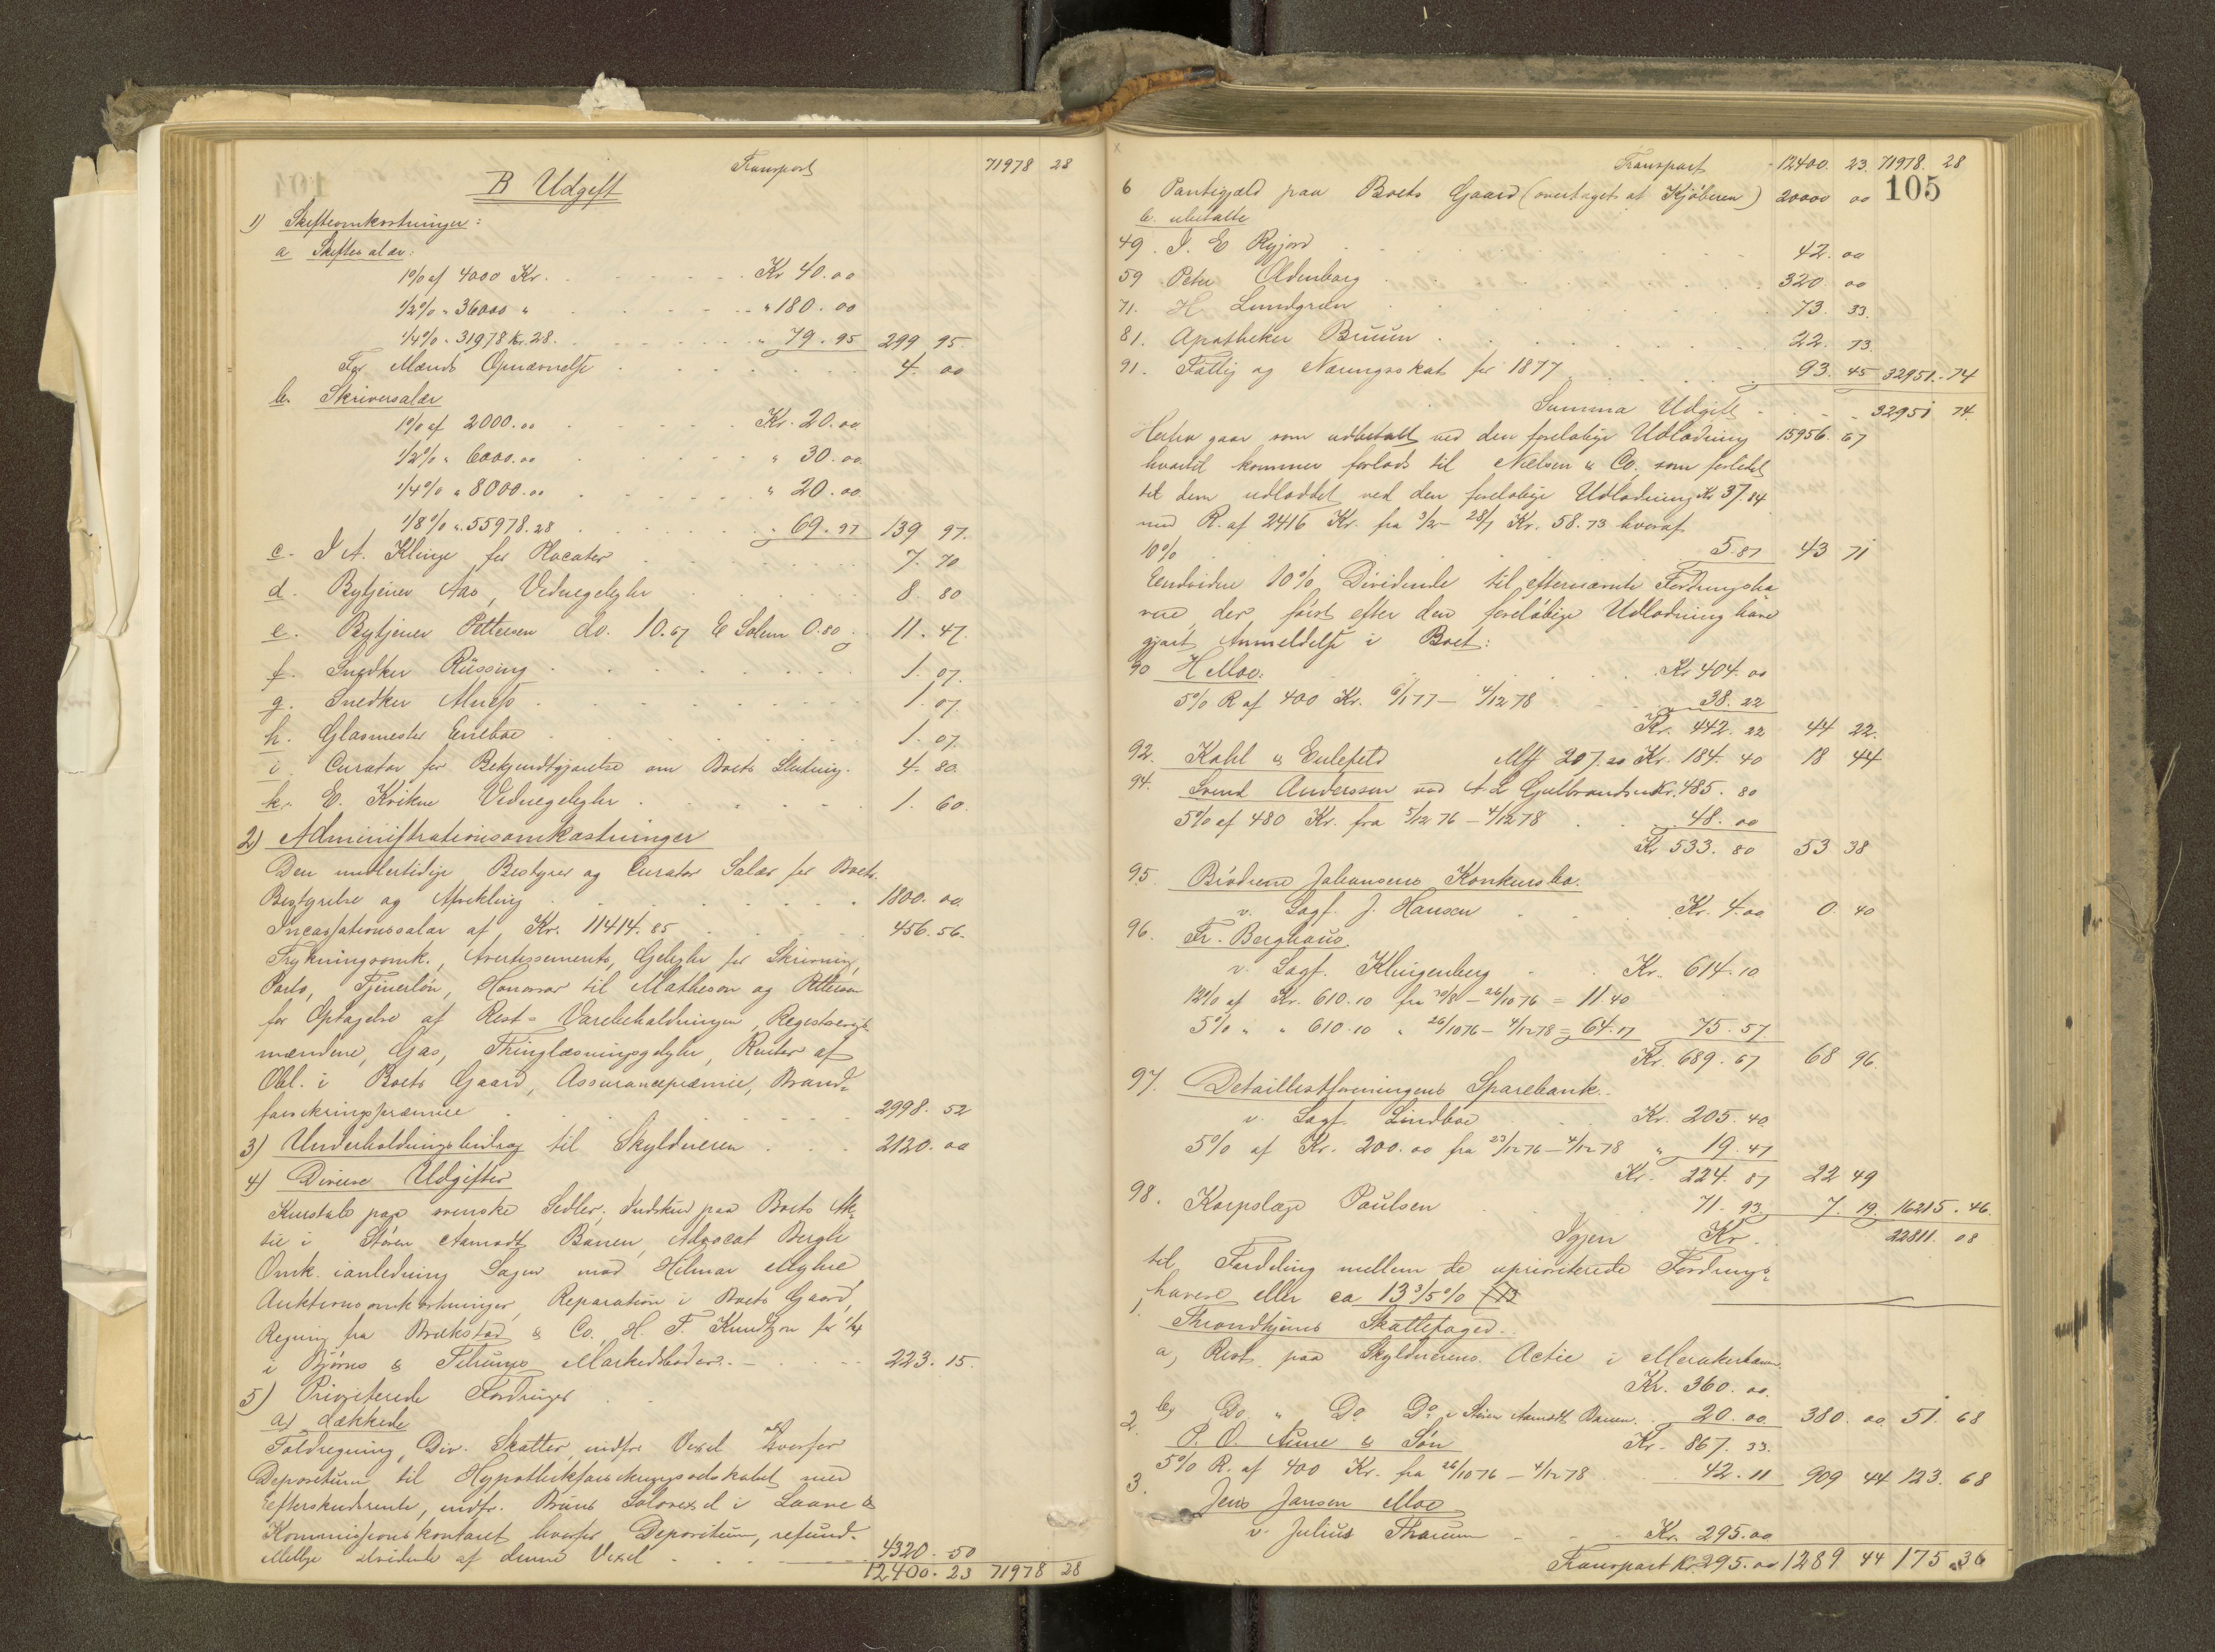 Transport 71978 28
B Udgift
1) Skifteomkostninger:
a Skiftesalær:
1% af 4000 Kr. Kr 40.00
1/2% " 36000 " " 180.00
1/4% " 31978 Kr. 28. " 79.95 299 95.
For Mænds Opnævnelse 4. 00
b. Skriversalær
1% af 2000.00 Kr. 20.00
1/2% " 6000.00 " 30.00
1/4% " 8000.00 " 20.00
1/8% " 55978.28 " 69.97 139 97.
c. J A. Klinge for Placater 7. 70
d. Bytjener Aas, Vidnegebyhr 8 80
e. Bytjener Pettersen do. 10.67 E Solem 0.80 11. 47.
f. Snedker Rüssing 1. 07.
g. Snedker Alness 1. 07.
h. Glasmester Eneboe 1. 07.
i. Curator for Bekjendtgjørelse om Boets Slutning. 4. 80.
k. E. Kvikne Vidnegebyhr 1. 60.
2) Administrationsomkostninger
Den midlertidige Bestyrer og Curator Salær for Boets
Bestyrelse og Afvikling 1800. 00
Incassationssalær af Kr. 11414.85 456.56.
Trykningsomk., Avertissements, Gebyhr for Skrivning,
Porto, Tjenerløn, Honorar til Matheson og Pettersen
for Optagelse af Rest-Varebeholdningen, Registrerings-
mændene, Gas, Thinglæsningsgebyhr, Renter af
Obl. i Boets Gaard, Assurancepræmie, Brand-
forsikringspræmie 2998. 52
3) Underholdningsbidrag til Skyldneren 2120. 00
4) Diverse Udgifter
Kurstab paa svenske Sedler, Indskud paa Boets Ak-
tie i Støren Aamodt Banen, Advocat Bergh
Omk. ianledning Sagen mod Hilmar Myhre,
Auktionsomkostninger, Reparation i Boets Gaard,
Regning fra Brækstad & Co. H. F. Kundtzon for 1/4
i Bjørns & Titrungs Markedsboder. 223. 15.
5) Prioriterede Fordringer
a) dækkede
Toldregning, Div. Skatter, indfr. Vexel hvorfor
Depositum til Hypothekforsikringsselskabet med
Efterskudsrente, indfr. Bruns Solavexel i Laane &
Kommissionskontoret hvorfor Depositum, refund.
Mellge dividende af denne Vexel 4320. 50
12400. 23 71978 28
Transport 12400. 23. 71978. 28
105
6 Pantegjæld paa Boets Gaard (overtaget af Kjøberen) 20000 00
b. ubetalte
49. J. E Ryjord 42. 00
59 Peter Oldenborg 320 00
71. H. Lundgreen 73. 33.
81. Apotheker Bruun 22. 73
91. Fattig og Næringsskat for 1877 93. 45 32951. 74
Summa Udgift 32951 74.
Herfra gaar som udbetalt ved den foreløbige Udlodning 15956. 67
hvortil kommer forlods til Nielsen & Co. som forlidet
til dem udloddet ved den foreløbige Udlodning Kr 37.84
med R. af 2416 Kr. fra 3/2 - 28/7 Kr. 58.73 hvoraf
10% 5.87 43 71
Endvidere 10% Dividende til efternævnte Fordringsha
vere der først efter den foreløbige Udlodning have
gjort Anmeldelse i Boet:
90 H Moe. Kr 404. 00
5% R af 400 Kr. 6/1 77 - 4/12 78 38. 22
Kr. 442. 22 44 22.
92. Kahl & Eulefeld Mk 207.20 Kr. 184. 40 18 44
94. Svend Anderssen ved A L Gulbrandsen Kr. 485. 80
5% af 480 Kr. fra 5/12 76 - 4/12 78 48. 00
Kr 533. 80 53 38
95. Brødrene Johansens Konkursbo.
v. Sagf. J. Hansen Kr. 4.00 0. 40
96. Fr. Berghaus.
v. Sagf. Klingenberg Kr. 614.10
12% af Kr. 610.10 fra 30/8 - 26/10 76 = 11.40
5% " " 610.10 " 26/10 76 - 4/12 78 = 64.17 75. 57.
Kr. 689. 67 68 96.
97. Detaillistforeningens Sparebank.
v. Sagf. Lindboe Kr. 205. 40
5% af Kr. 200.00 fra 23/12 76 - 4/12 78 " 19. 47
Kr. 224. 87 22 49
98. Korpslæge Paulsen 71. 93. 7. 19. 16215. 46.
Igjen Kr. 22811. 08
til Fordeling mellem de uprioriterede Fordrings-
havere eller ca 13 3/5%
1. Throndhjems Skattefoged.
a, Rest paa Skyldnerens Actie i Merakerbanen
Kr. 360. 00.
b, Do " Do Do i Støren Aamodt Banen. 20.00. 380. 00 51. 68
2. P. O. Aune & Søn Kr. 867. 33.
5% R. af 400 Kr. fra 26/10 76 - 4/12 78 42. 11 909 44 123. 68
3. Jens Jansen Moe
v. Julius Thaum Kr. 295.00
Transport Kr. 295.00 1289 44 175. 36